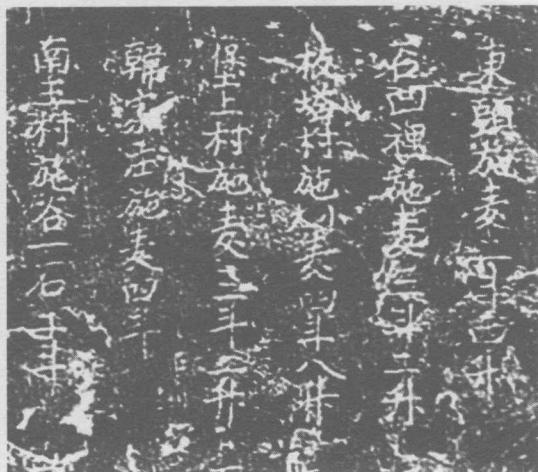 東頭施麦斗四升
石凹裡施麦三斗二升
板塔村施小麦四斗八升
堡上村施麦二斗六升
韓家庄施麦四斗
南王村施谷一石